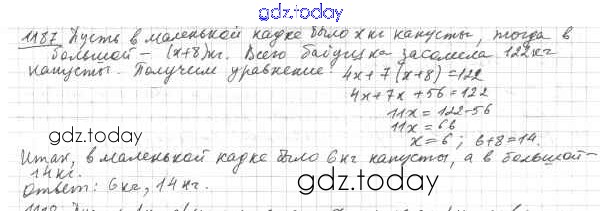 gdz.today
1187 Пусть в маленькой кадке было x кг капусты, тогда в
большой – (x+8) кг. Всего бабушка засолила 122 кг
капусты. Получим уравнение: 4x+7(x+8)=122
4x+7x+56=122
11x=122-56
gdz.today
11x=66
x=6; 6+8=14.
Итак, в маленькой кадке было 6 кг капусты, а в большой –
14 кг.
Ответ: 6 кг, 14 кг.
gdz.today